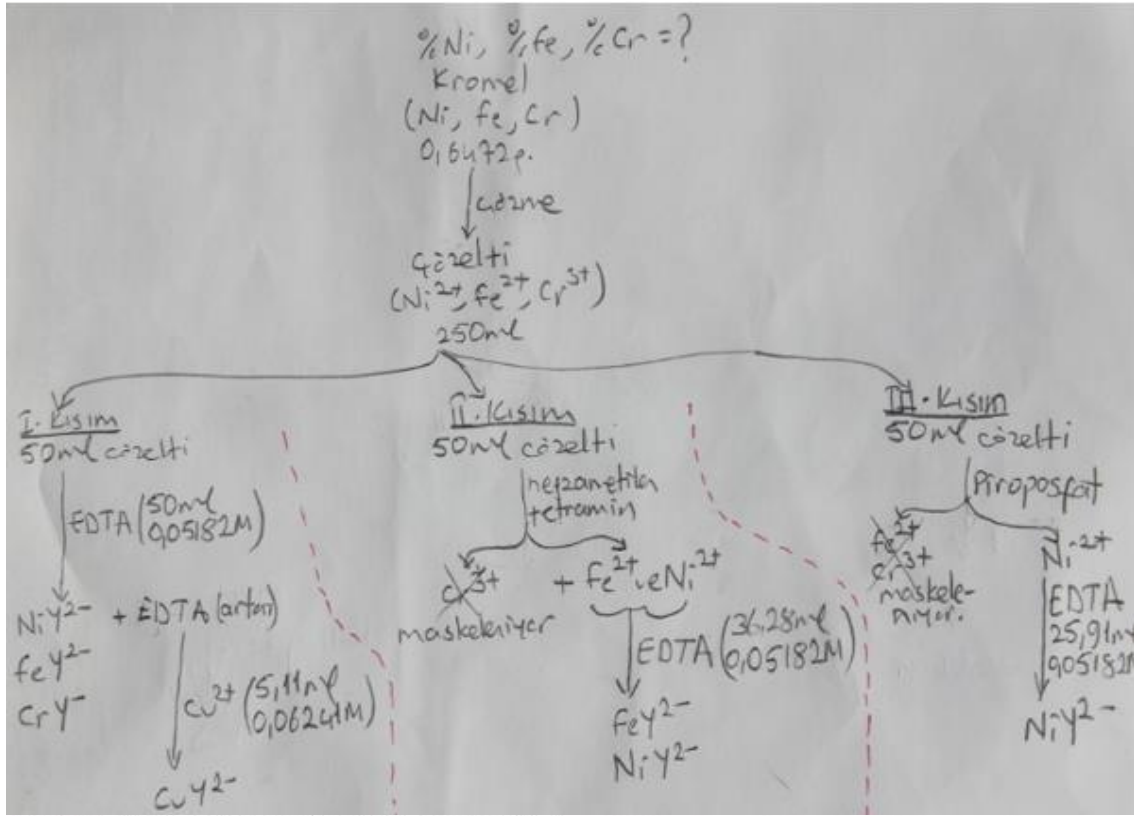 %Ni, %Fe, %Cr =?
Kromel
(Ni, Fe, Cr)
0,6472g.
çözme
Çözelti
(Ni2+, Fe2+, Cr3+)
250ml
I. Kısım
50ml çözelti
EDTA (50ml
0,05182M)
NiY2- + EDTA (artan)
FeY2-
CrY-
Cu2+ (5,11ml
0,06241M)
CuY2-
II. Kısım
50ml çözelti
tetramin
Cr3+ + Fe2+ ve Ni2+
maskeleniyor
EDTA (36,28ml
0,05182M)
FeY2-
NiY2-
III. Kısım
50ml çözelti
Piroposfat
Fe2+
Cr3+
maskele-
niyor.
Ni2+
EDTA
25,91ml
0,05182M
NiY2-